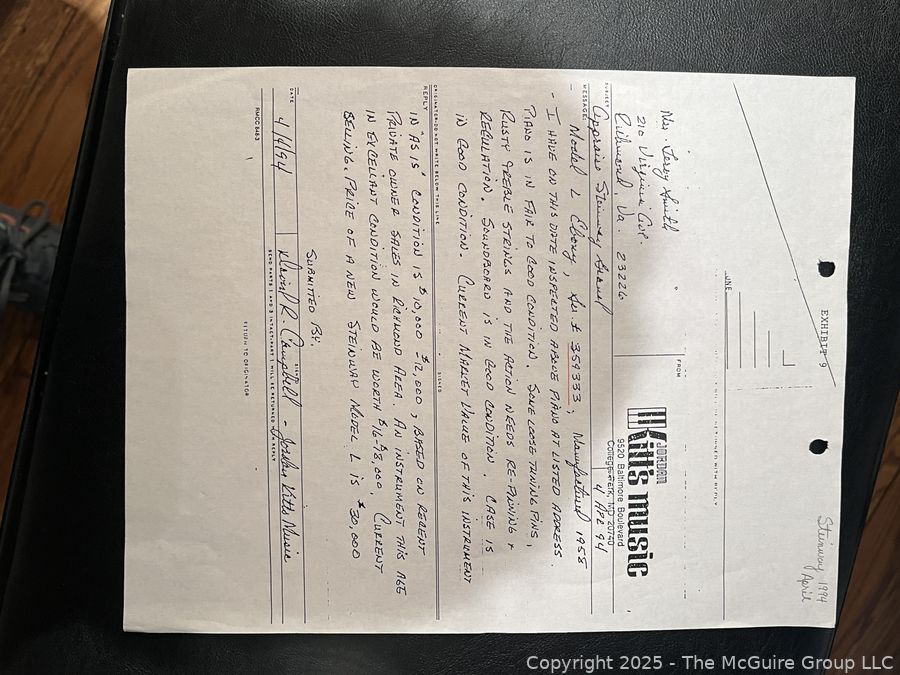 Steinway 1994
April
EXHIBIT 9
FROM
JORDAN
Kitt's music
9520 Baltimore Boulevard
College Park, MD 20740
Terry Smith
210 Virginia
Richmond, Va. 23226
SUBJECT
Appraise Steinway Grand
4 APR 94
MESSAGE
- Model L Ebony, Ser # 359333, Manufactured 1958
- I HAVE ON THIS DATE INSPECTED ABOVE PIANO AT LISTED ADDRESS.
PIANO IS IN FAIR TO GOOD CONDITION. SOME LOOSE TUNING PINS,
RUSTY TREBLE STRINGS AND THE ACTION NEEDS RE-PINNING +
REGULATION. SOUNDBOARD IS IN GOOD CONDITION. CASE IS
IN GOOD CONDITION. CURENT MARKET VALUE OF THIS INSTRUMENT
ORIGINATOR-DO NOT WRITE BELOW THIS LINE
SIGNED
REPLY
IN "AS IS" CONDITION IS $10,000 - $12,000, BASED ON RECENT
PRIVATE OWNER SALES IN RICHMOND AREA. AN INSTRUMENT THIS AGE
IN EXCELLANT CONDITION WOULD BE WORTH $16-$18,000. CURRENT
SELLING PRICE OF A NEW STEINWAY MODEL L IS $30,000
SUBMITTED BY:
DATE
4/4/94
SIGNED
David R Campbell - Jordan Kitts Music
SEND PARTS 1 AND 3 INTACT-PART 1 WILL BE RETURNED WITH REPLY
RMCC 8483
RETURN TO ORIGINATOR
Copyright 2025 - The McGuire Group LLC